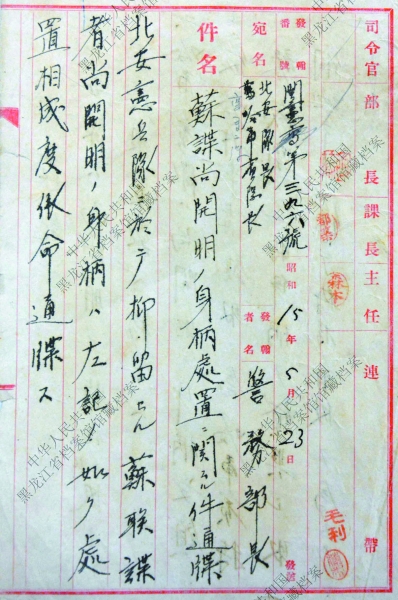 司令官 部長 課長 主任 連帶
發翰番號 関憲高第三九六號 昭和15年5月23日 發送
宛名 北安隊長
發翰者名 警務部長
件名 蘇諜尚開明ノ身柄處置ニ関スル件通牒
北安憲兵隊ニ於テ抑留セル蘇联諜
者尚開明ノ身柄ハ左記ノ如ク處
置相成度依命通牒ス
毛利
森本
中华人民共和国
黑龙江省档案馆馆藏档案